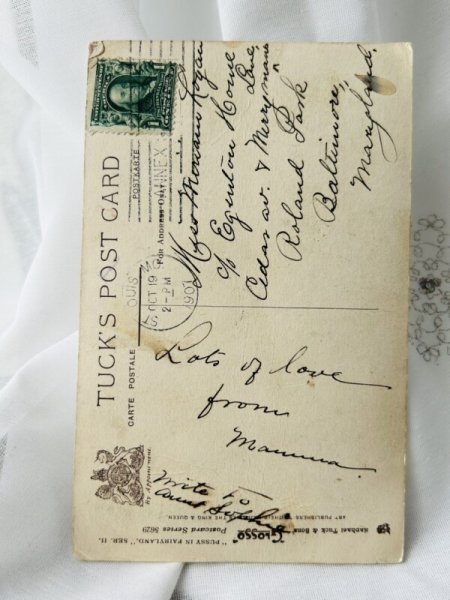 TUCK'S POST CARD
CARTE POSTALE
POSTKARTE
FOR ADDRESS ONLY
ANNEX
OCT 19
2-PM
1907
Miss Miriam Rogan
c/o Egenton Home
Cedar av. & Merrymans Lane,
Roland Park
Baltimore,
Maryland.
Lots of love
from
Mamma.
Write to
Aunt
by Appointment.
"PUSSY IN FAIRYLAND," SER. II.
"GLOSSO" Postcard Series 5629
Raphael Tuck & Sons'
ART PUBLISHERS TO THEIR MAJESTIES THE KING & QUEEN.